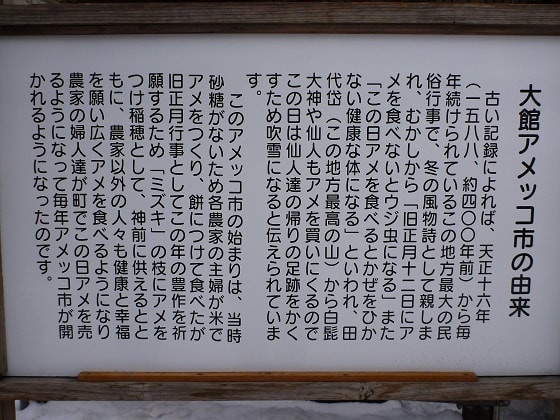 大館アメッコ市の由来
古い記録によれば、天正十六年
（一五八八、約四〇〇年前）から毎
年続けられているこの地方最大の民
俗行事で、冬の風物詩として親しま
れ、むかしから「旧正月十二日にア
メを食べないとウジ虫になる」また
「この日アメを食べるとかぜをひか
ない健康な体になる」といわれ、田
代岱（この地方最高の山）から白髭
大神や仙人もアメを買いにくるので
この日は仙人達の帰りの足跡をかく
すため吹雪になると伝えられていま
す。
このアメッコ市の始まりは、当時
砂糖がないため各農家の主婦が米で
アメをつくり、餅につけて食べたが
旧正月行事としてこの年の豊作を祈
願するため「ミズキ」の枝にアメを
つけ稲穂として、神前に供えるとと
もに、農家以外の人々も健康と幸福
を願い広くアメを食べるようになり
農家の婦人達が町でこの日アメを売
るようになって毎年アメッコ市が開
かれるようになったのです。